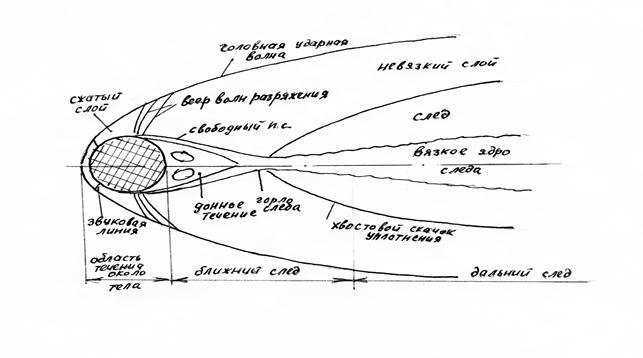 головная ударная
волна
невязкий слой
сжатый
слой
веер волн разряжения
след
свободный п.с.
вязкое ядро
следа
донное
течение
горло
следа
звуковая
линия
хвостовой скачок
уплотнения
область
течения
около
тела
ближний след
дальний след